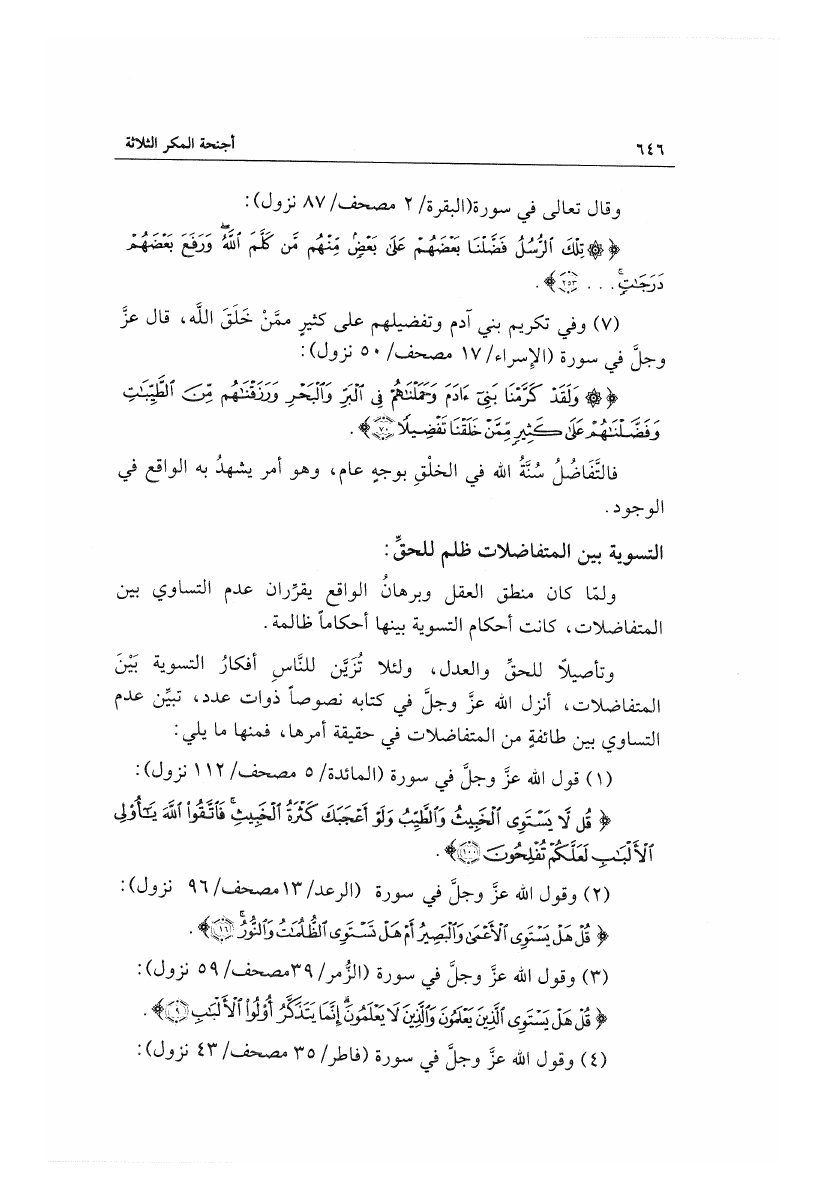 ٦٤٦ أجنحة المكر الثلاثة
وقال تعالى في سورة(البقرة/ ٢ مصحف/ ٨٧ نزول):
﴿۞ تِلْكَ ٱلرُّسُلُ فَضَّلْنَا بَعْضَهُمْ عَلَىٰ بَعْضٍۘ مِّنْهُم مَّن كَلَّمَ ٱللَّهُۖ وَرَفَعَ بَعْضَهُمْ
دَرَجَٰتٍۚ . . . ٢٥٣﴾ .
(٧) وفي تكريم بني آدم وتفضيلهم على كثيرٍ ممَّنْ خَلَقَ اللَّه، قال عزَّ
وجلَّ في سورة (الإسراء/ ١٧ مصحف/ ٥٠ نزول):
﴿۞ وَلَقَدْ كَرَّمْنَا بَنِىٓ ءَادَمَ وَحَمَلْنَٰهُمْ فِى ٱلْبَرِّ وَٱلْبَحْرِ وَرَزَقْنَٰهُم مِّنَ ٱلطَّيِّبَٰتِ
وَفَضَّلْنَٰهُمْ عَلَىٰ كَثِيرٍ مِّمَّنْ خَلَقْنَا تَفْضِيلًا ٧٠﴾ .
فالتَّفَاضُلُ سُنَّةُ الله في الخلْقِ بوجهٍ عام، وهو أمر يشهدُ به الواقع في
الوجود.
التسوية بين المتفاضلات ظلم للحقِّ:
ولمّا كان منطق العقل وبرهانُ الواقع يقرِّران عدم التساوي بين
المتفاضلات، كانت أحكام التسوية بينها أحكاماً ظالمة.
وتأصيلاً للحقِّ والعدل، ولئلا تُزَيَّن للنَّاسِ أفكارُ التسوية بَيْنَ
المتفاضلات، أنزل الله عزَّ وجلَّ في كتابه نصوصاً ذوات عدد، تبيِّن عدم
التساوي بين طائفةٍ من المتفاضلات في حقيقة أمرها، فمنها ما يلي:
(١) قول الله عزَّ وجلَّ في سورة (المائدة/ ٥ مصحف/ ١١٢ نزول):
﴿ قُل لَّا يَسْتَوِى ٱلْخَبِيثُ وَٱلطَّيِّبُ وَلَوْ أَعْجَبَكَ كَثْرَةُ ٱلْخَبِيثِۚ فَٱتَّقُوا۟ ٱللَّهَ يَٰٓأُو۟لِى
ٱلْأَلْبَٰبِ لَعَلَّكُمْ تُفْلِحُونَ ١٠٠﴾ .
(٢) وقول الله عزَّ وجلَّ في سورة (الرعد/ ١٣مصحف/ ٩٦ نزول):
﴿ قُلْ هَلْ يَسْتَوِى ٱلْأَعْمَىٰ وَٱلْبَصِيرُ أَمْ هَلْ تَسْتَوِى ٱلظُّلُمَٰتُ وَٱلنُّورُۗ ١٦﴾ .
(٣) وقول الله عزَّ وجلَّ في سورة (الزُّمر/ ٣٩مصحف/ ٥٩ نزول):
﴿ قُلْ هَلْ يَسْتَوِى ٱلَّذِينَ يَعْلَمُونَ وَٱلَّذِينَ لَا يَعْلَمُونَۗ إِنَّمَا يَتَذَكَّرُ أُو۟لُوا۟ ٱلْأَلْبَٰبِ ٩﴾ .
(٤) وقول الله عزَّ وجلَّ في سورة (فاطر/ ٣٥ مصحف/ ٤٣ نزول):